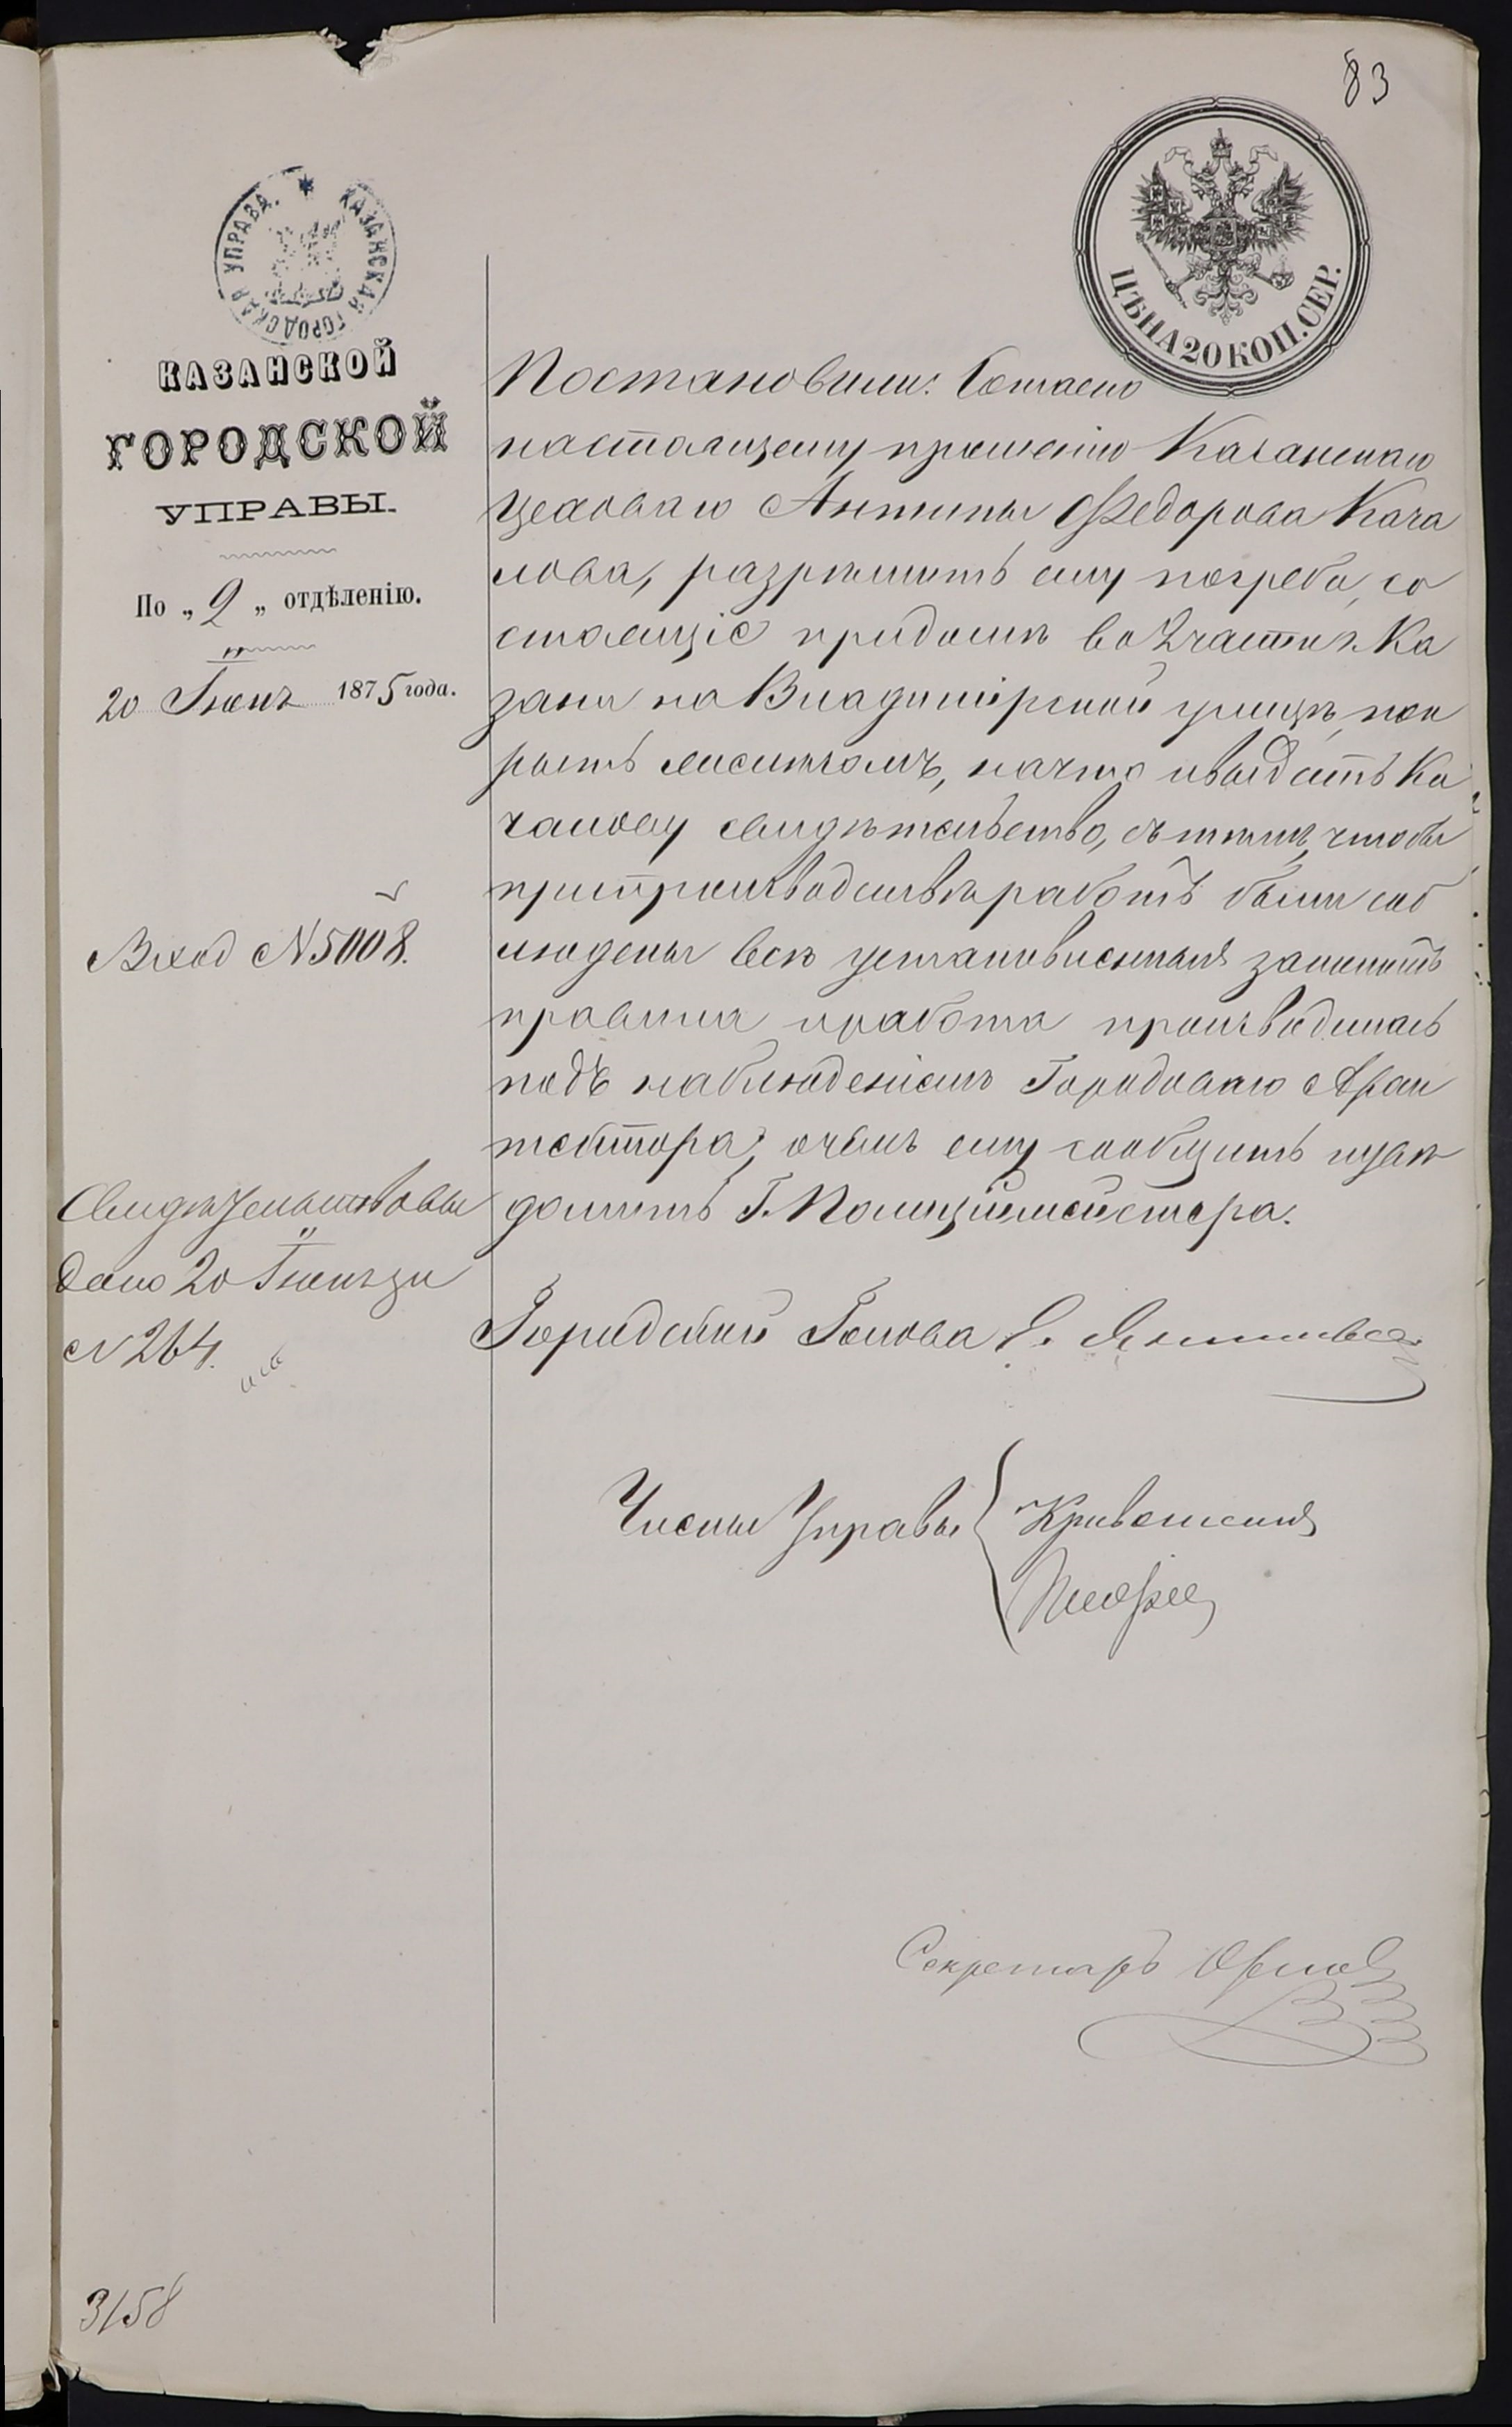 83
КАЗАНСКАЯ ГОРОДСКАЯ УПРАВА.
ЦѢНА 20 КОП. СЕР.
КАЗАНСКОЙ
ГОРОДСКОЙ
УПРАВЫ.
По „2„ отдѣленію.
20 Іюня 1875 года.
Вход N 5008.
Свидѣтельство вы
дано 20 Іюня за
N 264.
Постановили: Согласно
настоящему прошенію Казанскаго
цеховаго Антипы Федорова Кача
лова, разрѣшить ему погреба, со
стоящіе при домѣ во 2 части г. Ка
зани на Владимірской улицѣ, пок
рыть желѣзомъ, на что и выдать Ка
чалову свидѣтельство, съ тѣмъ, чтобы
при производствѣ работъ были соб
людены всѣ установленныя закономъ
правила и работа производилась
подъ наблюденіемъ Городоваго Архи
тектора, о чемъ ему сообщить и увѣ
домить Г. Полицiймейстера.
Городской Голова Э. Янишевс
Члены Управы
Секретарь Орлов
3158